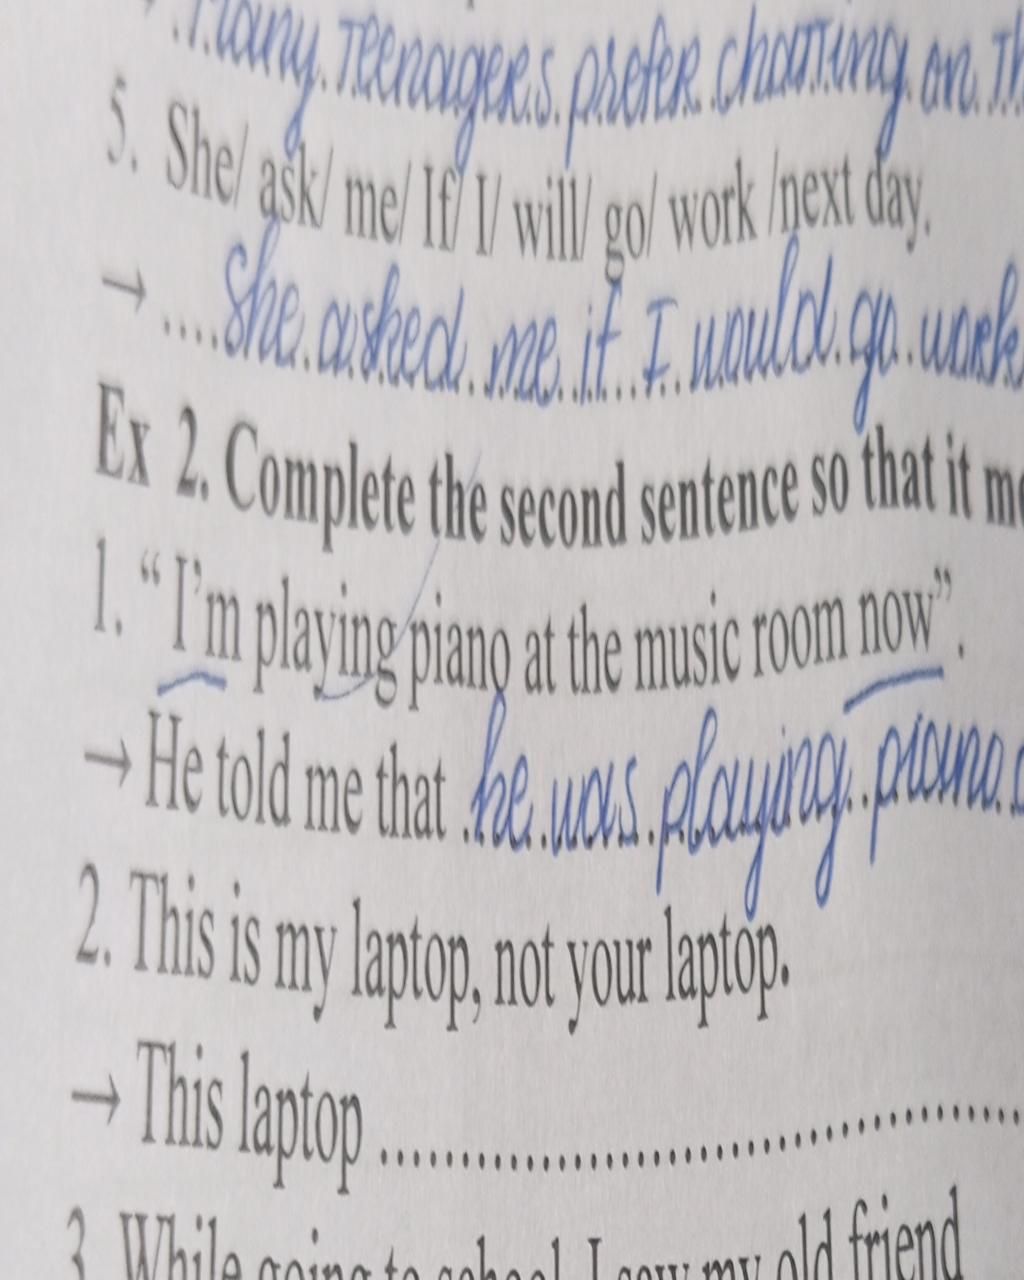 Many Teenagers prefer chatting on Th
5. She/ ask/ me/ If/ I/ will/ go/ work /next day.
→ ....She asked me if I would go work
Ex 2. Complete the second sentence so that it me
1. “ I’m playing piano at the music room now” .
→ He told me that he was playing piano
2. This is my laptop, not your laptop.
→ This laptop ........................................
3. While going to school, I saw my old friend